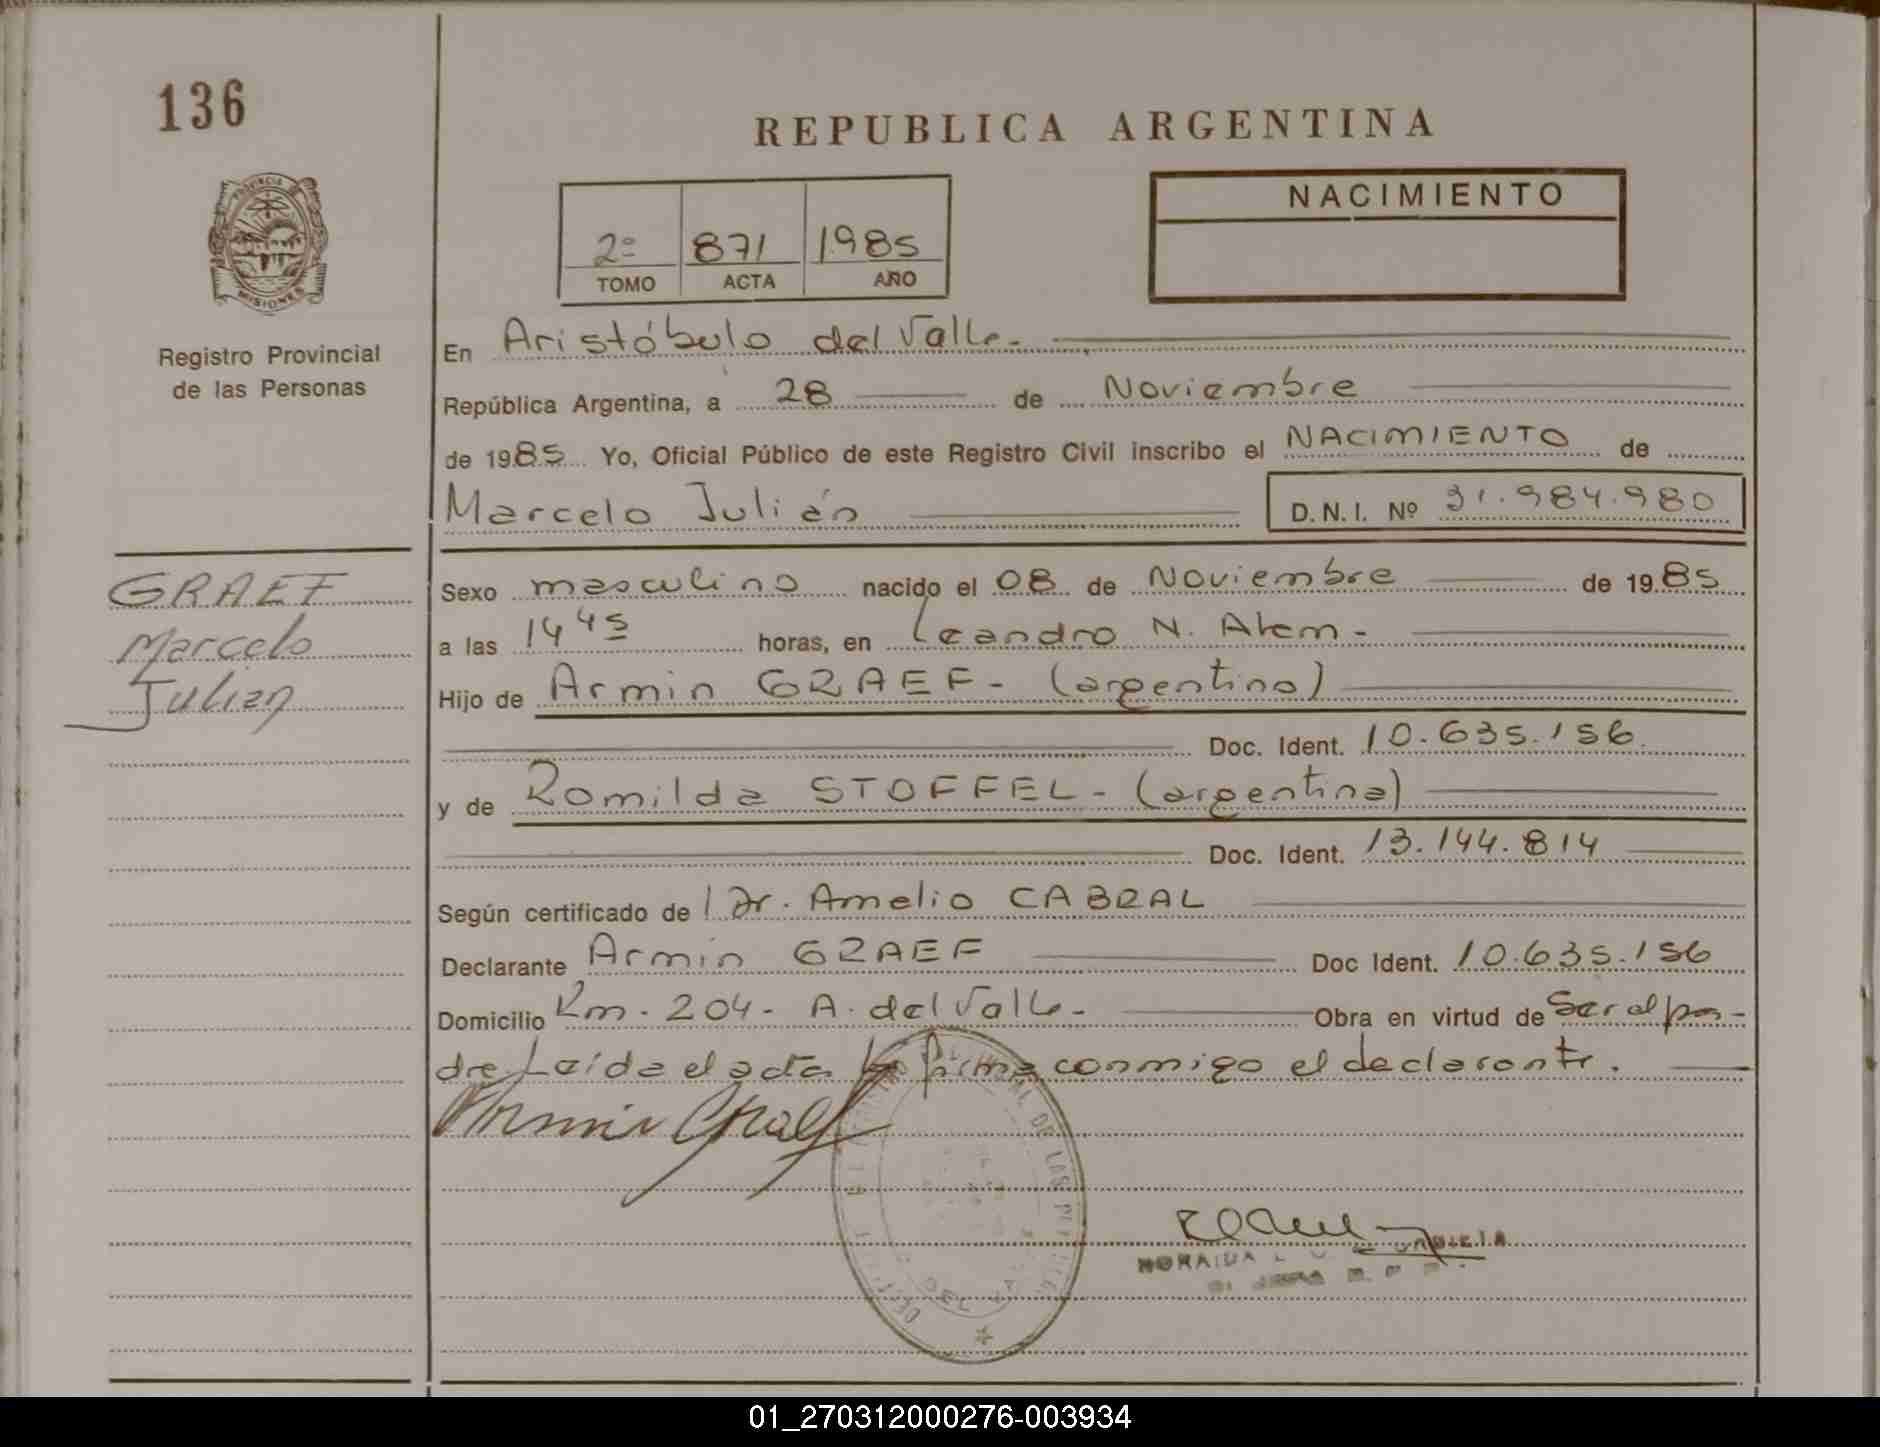 136
REPUBLICA ARGENTINA
PROVINCIA DE
MISIONES
Registro Provincial
de las Personas
NACIMIENTO
2º 871 1985
TOMO ACTA AÑO
En Aristóbulo del Valle.-
República Argentina, a 28 de Noviembre
de 1985 Yo, Oficial Público de este Registro Civil inscribo el NACIMIENTO de
Marcelo Julián D.N.I. Nº 31.984.980
GRAEF
Marcelo
Julian
Sexo masculino nacido el 08 de Noviembre de 1985
a las 14 45 horas, en Leandro N. Alem -
Hijo de Armin GRAEF - (argentino)
Doc. Ident. 10.635.156.
y de Romilda STOFFEL - (argentina)
Doc. Ident. 13.144.814
Según certificado de Dr. Amelio CABRAL
Declarante Armin GRAEF Doc Ident. 10.635.156
Domicilio Km. 204 - A. del Valle - Obra en virtud de Ser el pa-
dre Leída el acta la firma conmigo el declarante.
Armin Graef
DE LAS
DEL
01_270312000276-003934